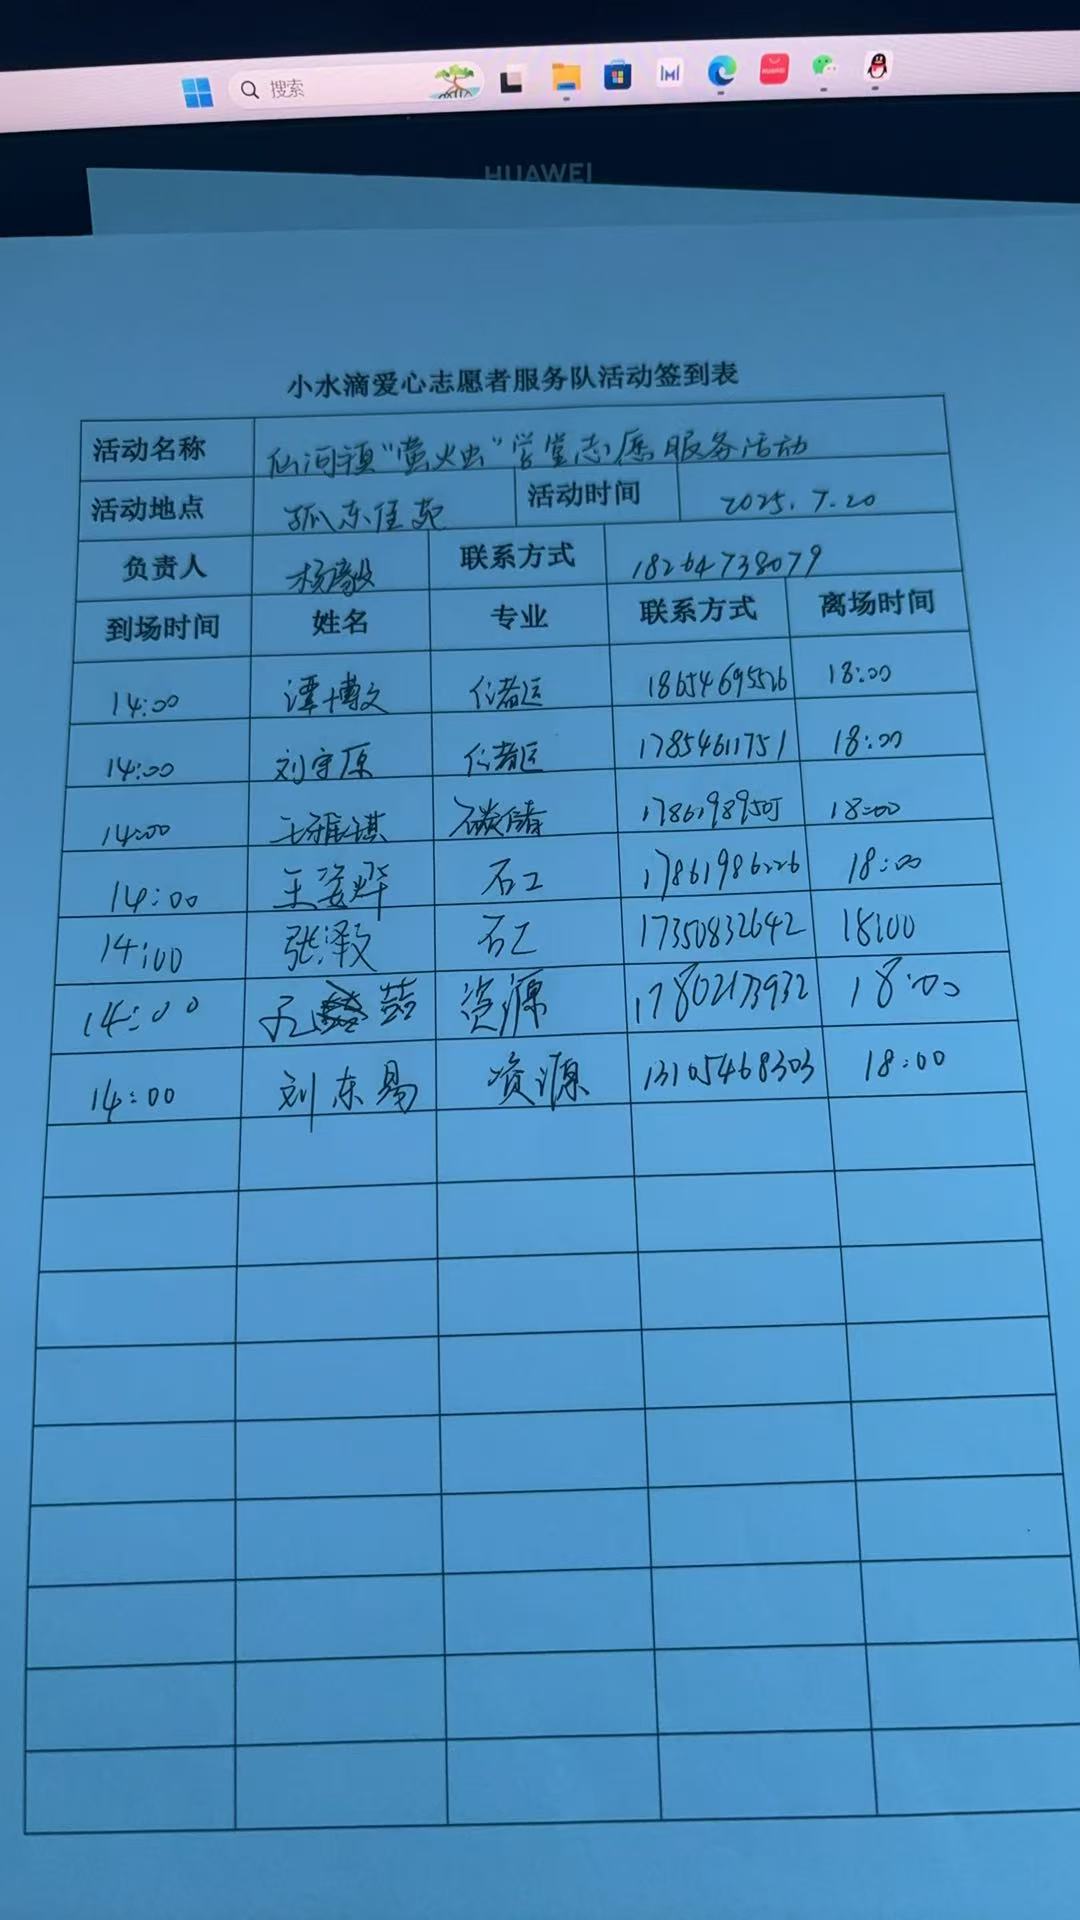 搜索
HUAWEI
小水滴爱心志愿者服务队活动签到表
活动名称 仙河镇“萤火虫”学堂志愿服务活动
活动地点 孤东佳苑 活动时间 2025.7.20
负责人 杨毅 联系方式 18264738079
到场时间 姓名 专业 联系方式 离场时间
14:00 谭博文 18654695526 18:00
14:00 刘宇原 17854611751 18:00
14:00 王雅琪 碳储 18:00
14:00 王姿烨 石工 17861986226 18:00
14:00 张泽文 石工 17350832642 18:00
14:00 孔喆 资源 17802173932 18:00
14:00 刘东易 资源 13105468303 18:00